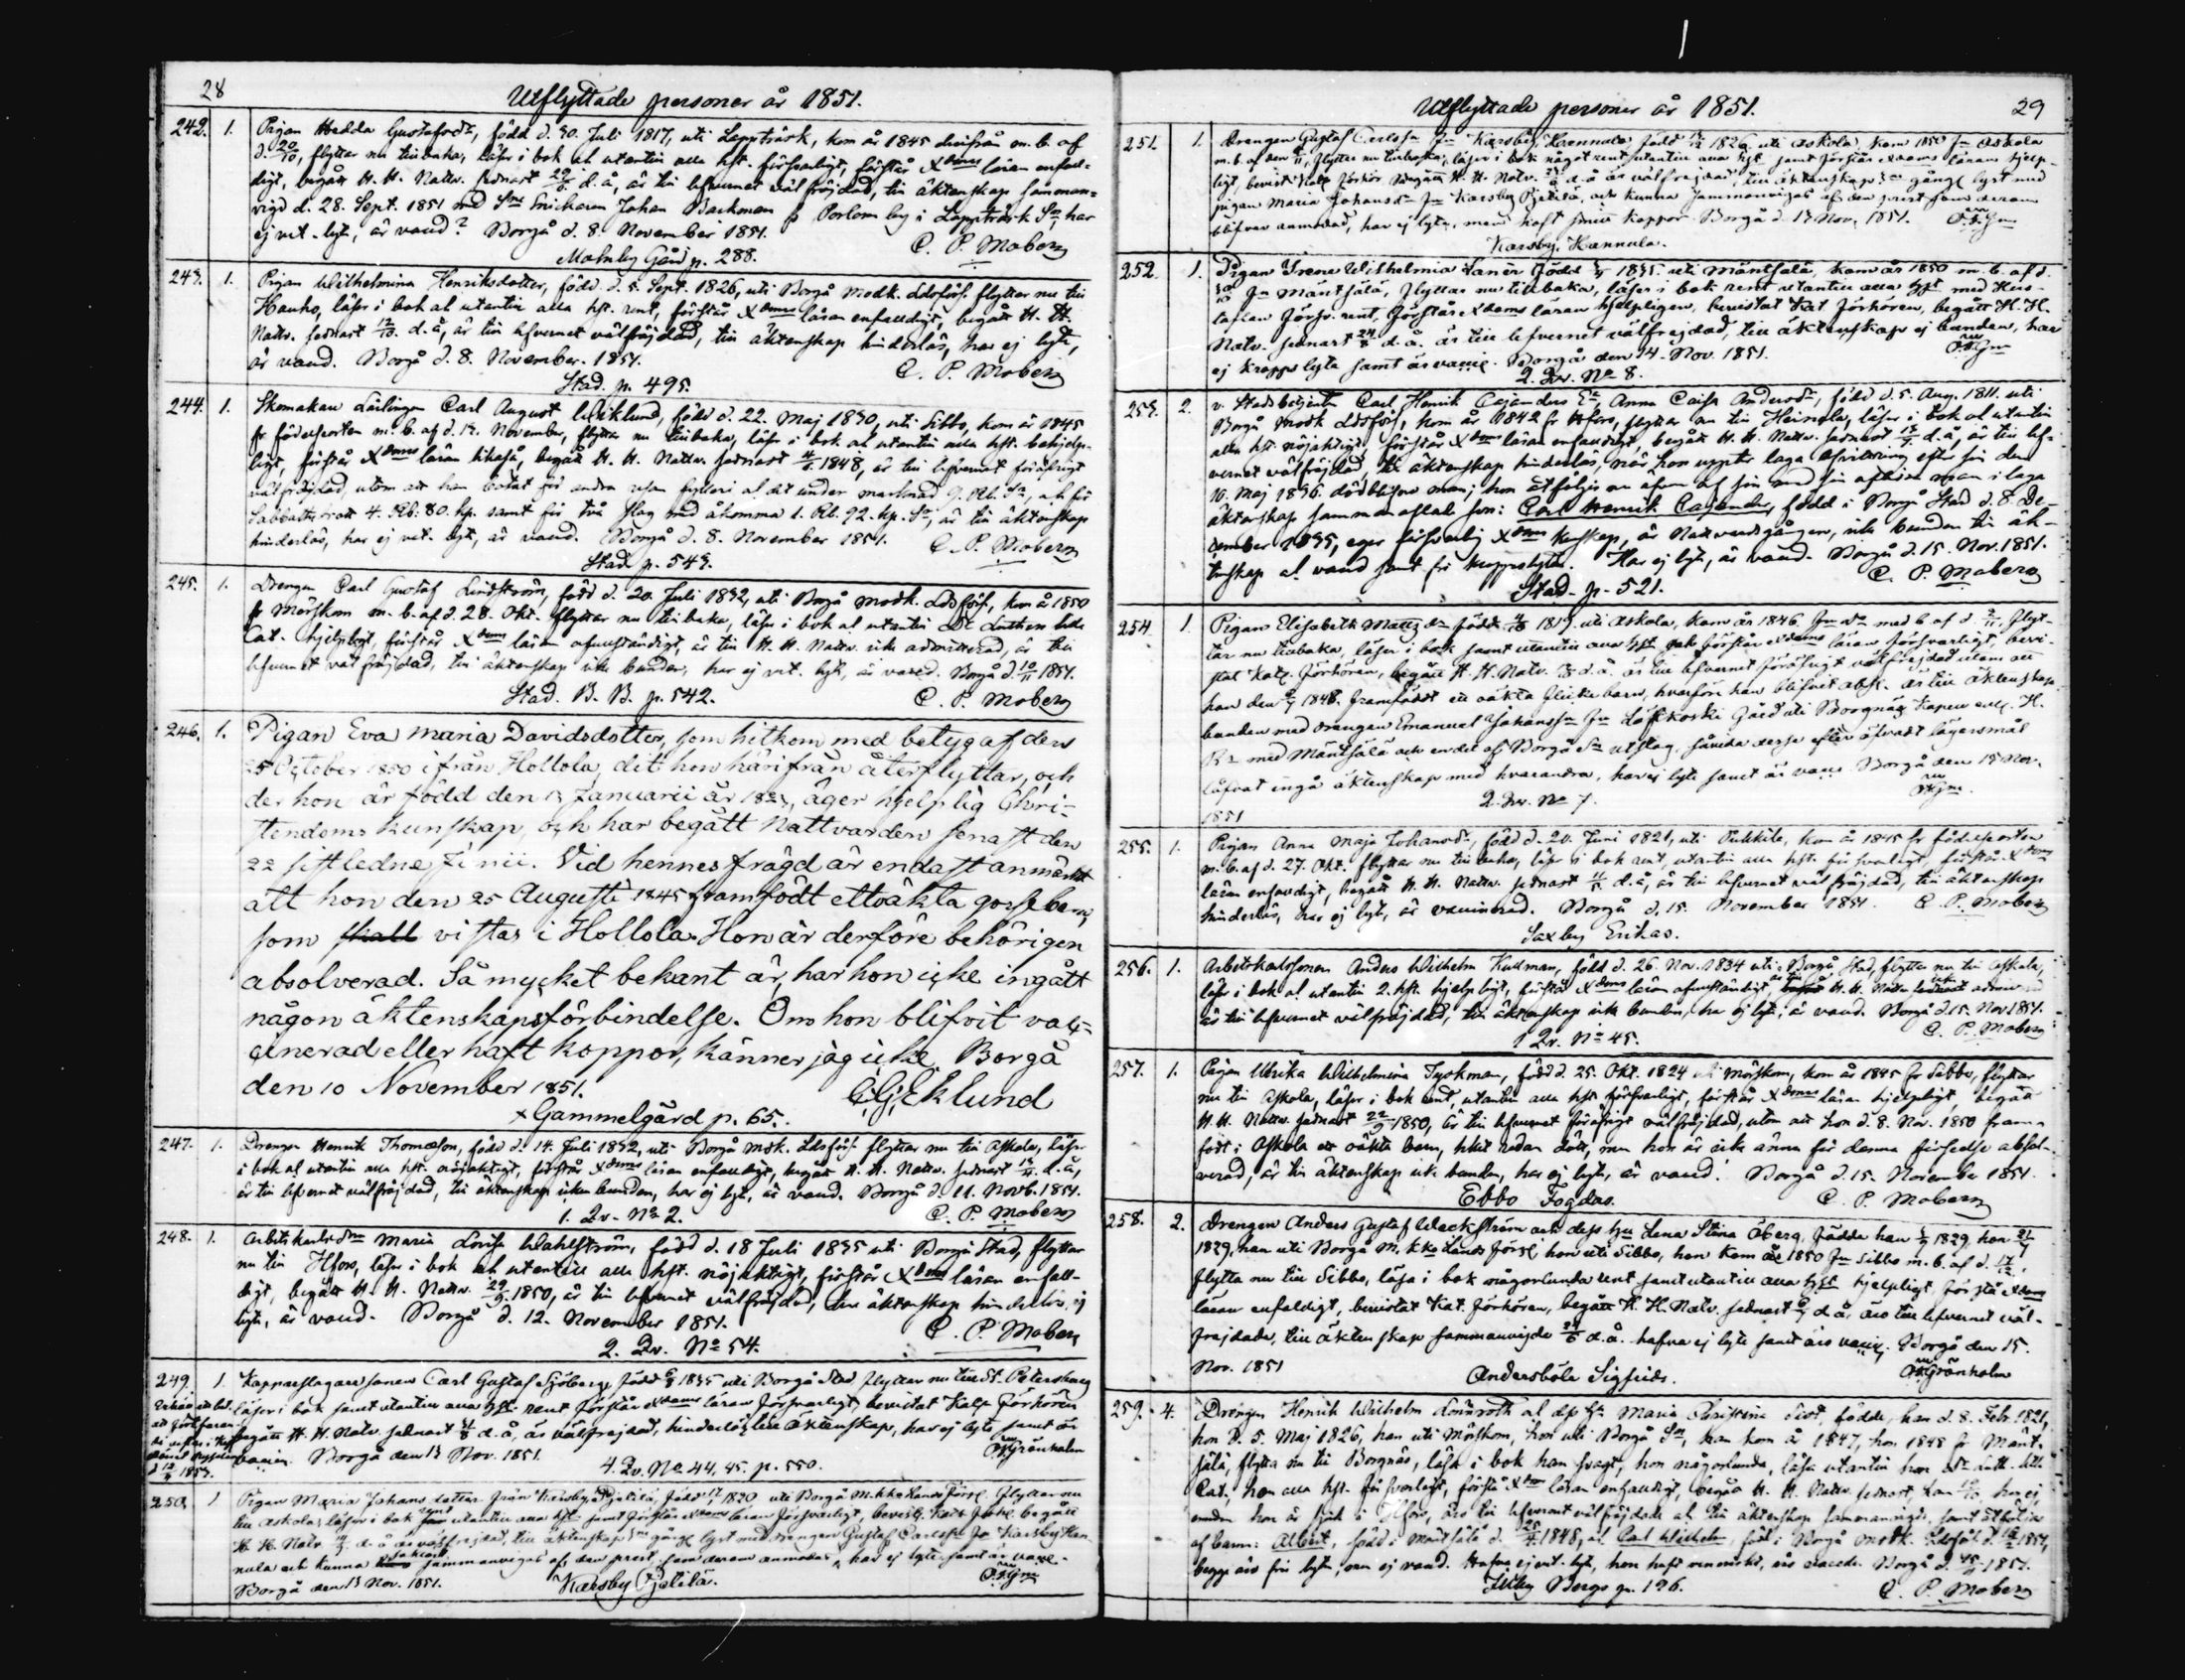 28
Utflyttade personer år 1851.
242. 1. Pigan Hedda Gustafsdr, född d. 30. Juli 1817, uti Lappträsk, kom år 1845 derifrån m. b. af
d. 20/10, flyttar nu tillbaka, läser i bok al utantill alla hst. försvarligt, förstår Xdoms läran enfal-
digt, begått H. H. Nattv. sednast 29/6 d. å, är till lefvernet välfräjdad, till äktenskap samman-
vigd d. 28. Sept. 1851 med Johan Backman Porlom by i Lappträsk Sn, har
ej vet. lyte, är vaccd? Borgå d. 8. November 1851.
C. P. Moberg
Malmby Gård p. 288.
243. 1. Pigan Wilhelmina Henriksdotter, född d. 5. Sept. 1826, uti Borgå modk. Ldsförs. flyttar nu till
Hauho, läser i bok al utantill alla hst. rent, förstår Xdoms läran enfaldigt, begått H. H.
Nattv. sednast 12/10 d. å, är till lefvernet välfräjdad, till äktenskap hinderlös, har ej lyte,
är vaccd. Borgå d. 8. November. 1851.
C. P. Moberg
Stad. p. 495.
244. 1. Skomakare Lärlingen Carl August Wiklund, född d. 22. Maj 1830, uti Sibbo, kom år 1845
fr födelseorten m. b. af d. 12. November, flyttar nu tillbaka, läser i bok al utantill alla hst. behjelp-
ligt, förstår Xdoms läran likaså, begått H. H. Nattv. sednast 1848, är till lefvernet föröfrigt
välfräjdad, utom att han botat för andra resan fylleri al det under marknad 9. Rb. Sr, al för
Sabbatsbrott 4. Rb: 80. kp. samt för två slag med åkomma 1. Rb. 92. kp. Sr, är till äktenskap
hinderlös, har ej vet. lyte, är vaccd. Borgå d. 8. November 1851. C. P. Moberg
Stad p. 543.
245. 1. Drengen Carl Gustaf Lindström, född d. 20. Juli 1832, uti Borgå modk. Ldsförs, kom år 1850
fr Mörskom m. b. af d. 28. Okt. flyttar nu tillbaka, läser i bok al utantill Dr Luthers lilla
Cat. hjelpligt, förstår Xdoms läran ofullständigt, är till H. H. Nattv. icke admitterad, är till
lefvernet välfräjdad, till äktenskap icke bunden, har ej vet. lyte, är vaccd. Borgå d. 10/11 1851.
Stad. B. B. p. 542.
C. P. Moberg
246. 1. Pigan Eva Maria Davidsdotter, som hitkom med betyg af den
25 October 1850 ifrån Hollola, dit hon härifrån återflyttar, och
der hon är född den 13 Januarii år, äger hjelplig Chri-
stendoms kunskap, och har begått Nattvarden senast den
22 sistledne Junii. Vid hennes frägd är endast anmärkt
att hon den 25 Augusti 1845 framfödt ett oäkta gossebarn,
som skall vistas i Hollola. Hon är derföre behörigen
absolverad. Så mycket bekant är, har hon icke ingått
någon äktenskapsförbindelse. Om hon blifvit vac-
cinerad eller haft koppor, känner jag icke. Borgå
den 10 November 1851.
C. G. Eklund
x Gammelgård p. 65.
247. 1. Drengen Henrik Thomasson, född d. 14. Juli 1832, uti Borgå mdk. Ldsförs. flyttar nu till Askola, läser
i bok al utantill alla hst. nöjaktigt, förstår Xdoms läran enfaldigt, begått H. H. Nattv. sednast d. å,
är till lefvernet välfräjdad, till äktenskap icke bunden, har ej lyte, är vaccd. Borgå d. 11. Novb. 1851.
1. Qv. No 2.
C. P. Moberg
248. 1. Arbetskarlsdr Maria Lovisa Wahlström, född d. 18 Juli 1835 uti Borgå Stad, flyttar
nu till Hfors, läser i bok al utantill alla hst. nöjaktigt, förstår Xdoms läran enfald-
igt, begått H. H. Nattv. 29/9 1850, är till lefvernet välfräjdad, till äktenskap hinderlös, ej
lyte, är vaccd. Borgå d. 12. November 1851.
C. P. Moberg
2. Qv. No 54.
249. 1. Kopparslagare sonen Carl Gustaf Sjöberg, född 1835 uti Borgå Stad flyttar nu till St. Petersburg
läser i bok samt utantill alla hst. rent förstår Xdoms läran försvarligt, bevistat Kat. Förhören
begått H. H. Natv. sednast d. å, är välfrejdad, hinderlös till äktenskap, har ej lyte samt är
vaccin. Borgå den 13 Nov. 1851.
Grönholm
4. Qv. No 44, 45. p. 550.
250. 1 Pigan Maria Johansdotter från Karsby Pjelilä, född 1830 uti Borgå M. kka Lands Förs. flyttar nu
till Askola, läser i bok rent utantill alla hst. samt förstår Xdoms läran försvarligt, bevist. Kat. Förh. begått
H. H. Natv. d. å är välfrejdad, till äktenskap gång lyst med drengen Gustaf Carlsson fr Karsby Han-
nula och kunna sammanvigas af den prest, som derom anmodas, har ej lyte samt är vacc.
Borgå den 13 Nov. 1851.
Karsby Pjelilä.
29
Utflyttade personer år 1851.
251. 1. Drengen Gustaf Carlsson fr Karsby Hannula, född 1826 uti Askola, kom 1850 fr Askola
m. b. af den, flyttar nu tillbaka, läser i bok något rent utantill alla hst. samt förstår Xdoms läran hjelp-
ligt, bevist. Kat. förhör. begått H. H. Natv. d. å är välfrejdad, till äktenskap gång lyst med
pigan Maria Johansdr fr Karsby Pjelilä, och kunna sammanvigas af den prest som derom
blifver anmodad, har ej lyte, men haft koppor. Borgå d. 13 Nov. 1851.
Karsby Hannula.
252. 1. Pigan Irene Wilhelmia Lanér född 1835. uti Mäntsälä, kom år 1850 m. b. af d.
fr Mäntsälä, flyttar nu tillbaka, läser i bok rent utantill alla hst. med Hus-
taflan förs. rent, förstår Xdoms läran hjelpligen, bevistat Kat förhören, begått H. H.
Natv. sednast d. å. är till lefvernet välfrejdad, till äktenskap ej bunden, har
ej kropps lyte samt är vaccin. Borgå den 14. Nov. 1851.
2. Qv. No 8.
253. 2. v. Stadsbetjenten Carl Henrik Cajanders Ea Anna Caisa Andersdr, född d. 5. Aug. 1811. uti
Borgå modk Ldsförs, kom år 1842 fr Hfors, flyttar nu till Heinola, läser i bok al utantill
alla hst. nöjaktigt, förstår Xdoms läran enfaldigt, begått H. H. Nattv. sednast d. å, är till lef-
vernet välfräjdad, till äktenskap hinderlös, när hon uppter laga afvittring efter sin den
10. Maj 1836. dödblifne man; hon åtföljes nu äfven af sin med sin aflidne man i laga
äktenskap sammanaflade son: Carl Henrik Cajander, född i Borgå Stad d. 8. De-
cember 1835, eger försvarlig Xdoms kunskap, är Nattvardsgången, icke bunden till äk-
tenskap al vaccd samt fri kroppslyte. Har ej lyte, är vaccd. Borgå d. 15. Nov. 1851.
C. P. Moberg
Stad. p. 521.
254 1 Pigan Elisabeth Mattsdr född 1819. uti Askola, kom år 1846 med b. af d., flyt-
tar nu tillbaka, läser i bok samt utantill alla hst. och förstår Xdoms läran försvarligt, bevi-
stat Kat. förhören, begått H. H. Natv. d. å. är till lefvernet föröfrigt välfrejdad utom att
hon den 1848. framfödt ett oäkta flickebarn, hvarföre hon blifvit abs. är till äktenskap
bunden med drengen Emanuel Johansson fr Löfkoski Gård uti Borgnäs Kapell enl. H.
Rs med Mäntsälä och en del af Borgå Sn utslag, sålunda dessa efter öfvadt lägersmål
låfvat ingå äktenskap med hvarandra, har ej lyte samt är vacc Borgå den 15 Nov.
1851
2. Qv. No 7.
255. 1. Pigan Anna Maja Johansdr, född d. 20. Juni 1821, uti Pukkila, kom år 1845 fr födelseorten
m. b. af d. 27. Okt. flyttar nu tillbaka, läser i bok rent, utantill alla hst. försvarligt, förstår Xdoms
läran enfaldigt, begått H. H. Nattv. sednast d. å, är till lefvernet välfräjdad, till äktenskap
hinderlös, har ej lyte, är vaccinerad. Borgå d. 15. November 1851. C. P. Moberg
Saxby Erikas.
256. 1. Arbetskarlssonen Anders Wilhelm Kullman, född d. 26. Nov. 1834 uti Borgå Stad, flyttar nu till Askola,
läser i bok al utantill 2. hst. hjelpligt, förstår Xdoms läran ofullständigt, H. H. Nattv. icke
är till lefvernet välfräjdad, till äktenskap icke bunden, har ej lyte, är vaccd. Borgå d. 15. Nov 1851.
C. P. Moberg
Qv. No 45.
257. 1. Pigan Ulrika Wilhelmina Tyskman, född d. 25. Okt. 1824 uti Mörskom, kom år 1845 fr Sibbo, flyttar
nu till Askola, läser i bok rent, utantill alla hst försvarligt, förstår Xdoms läran hjelpligt, begått
H. H. Nattv. sednast 22/9 1850, är till lefvernet föröfrigt välfräjdad, utom att hon d. 8. Nov. 1850 fram-
födt i Askola ett oäkta barn, hvilket redan dött, men hon är icke ännu för denna förseelse absol-
verad, är till äktenskap icke bunden, har ej lyte, är vaccd. Borgå d. 15. November 1851.
Ebbo Fogdas.
C. P. Moberg
258. 2. Drengen Anders Gustaf Weckström och dess hu Lena Stina Öberg, födda han 1829, hon 21/7
1829, han uti Borgå M. kka Lands Förs., hon uti Sibbo, hon kom år 1850 fr Sibbo m. b. af d. 17/12.
flytta nu till Sibbo, läsa i bok någorlunda rent samt utantill alla hst. hjelpligt, förstå Xdoms
läran enfaldigt, bevistat Kat. förhören, begått H. H. Natv. sednast d. å, äro till lefvernet väl-
frejdade, till äktenskap sammanvigde d. å. hafva ej lyte samt äro vaccin. Borgå den 15.
Nov. 1851
Andersböle Sigfrids.
Grönholm
259. 4. Drengen Henrik Wilhelm Lönnroth al dess hu Maria Christina, födde, han d. 8. Feb. 1821,
hon d. 5. Maj 1826, han uti Mörskom, hon uti Borgå Sn, han kom år 1847, hon 1848 fr Mänt-
sälä, flytta nu till Borgnäs, läsa i bok han svagt, hon någorlunda, läsa utantill han Dr Luth. lilla
Cat., hon alla hst. försvarligt, förstå Xdoms läran enfaldigt, begått H. H. Nattv. sednast, han, hon ej,
emedan hon är sjuk i Hfors, äro till lefvernet välfräjdade al till äktenskap sammanvigde, samt åtföljas
af barn: Albert, född i Mäntsälä d. 1848, al Carl Wilhelm, född i Borgå modk. Ldsförs. d. 1851,
begge äro fria lyte, men ej vaccd. Hafva ej vet. lyte, Borgå d. 15/11 1851.
Illby Bergs p. 196.
C. P. Moberg